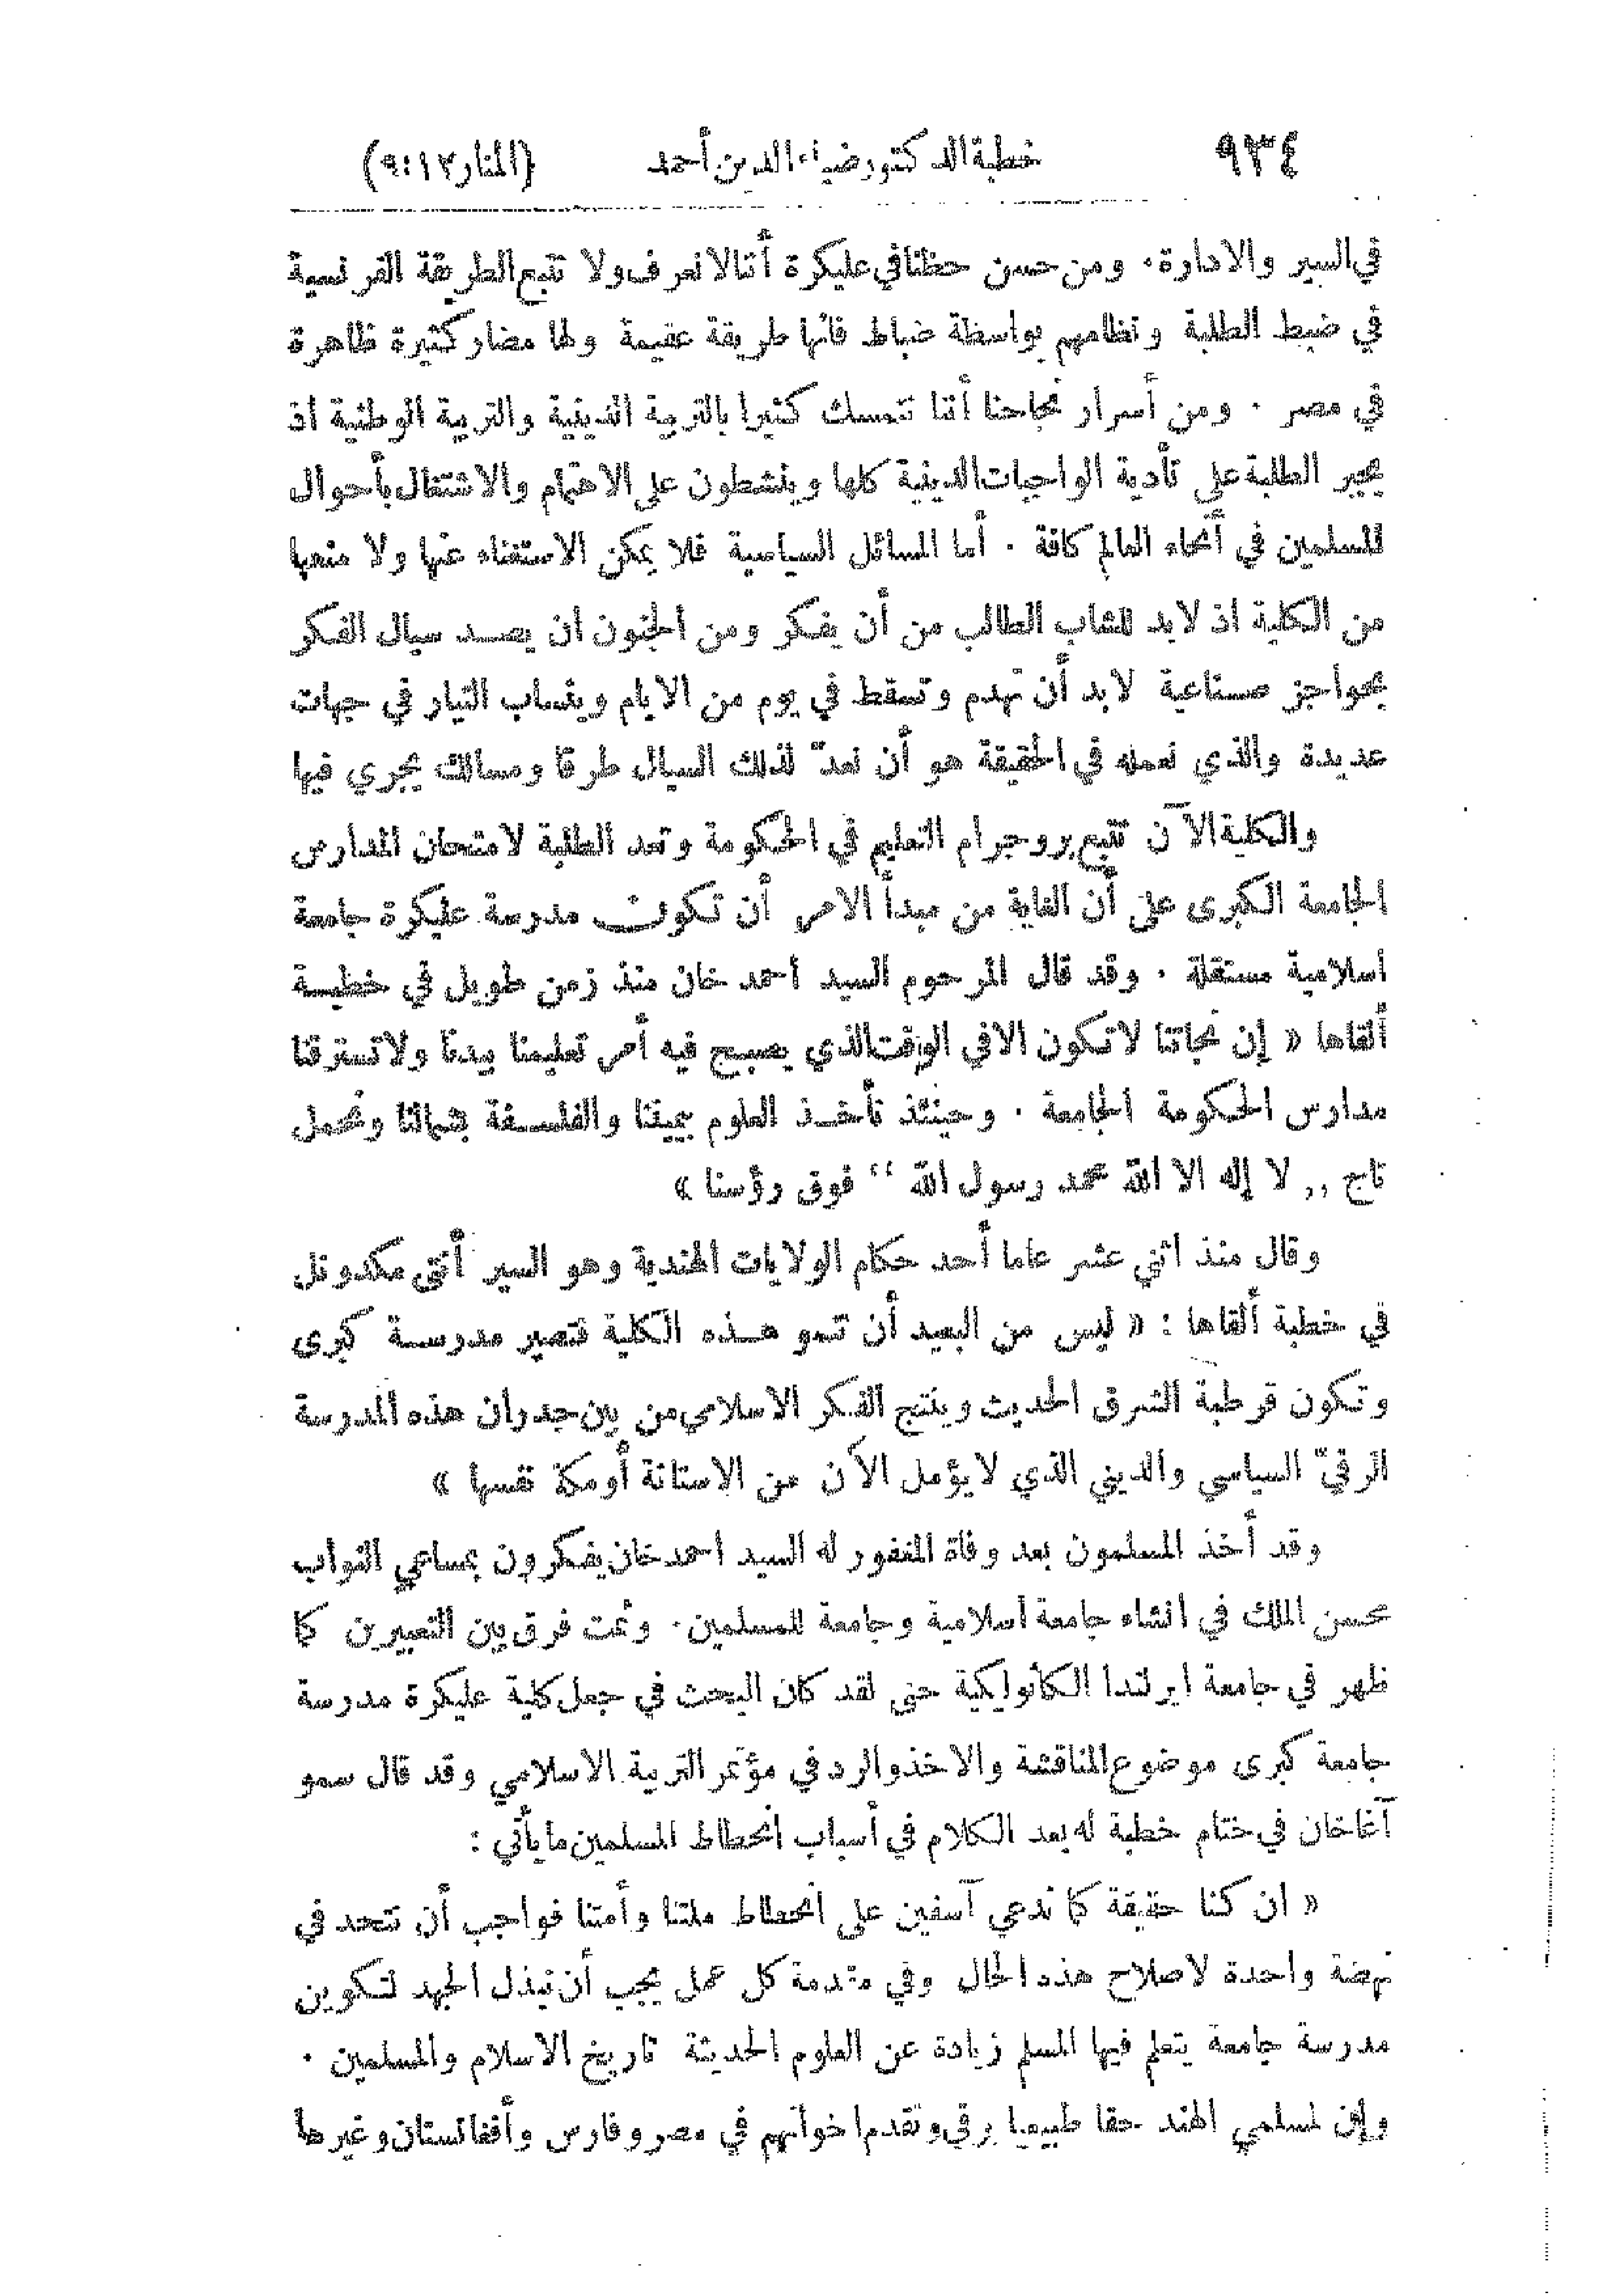 ٩٣٤ خطبة الدكتور ضياء الدين أحمد (المنار ١٢:٩)
في السير والادارة. ومن حسن حظنا في عليكرة أننا لا نعرف ولا نتبع الطريقة الفرنسية
في ضبط الطلبة ونظامهم بواسطة ضباط فانها طريقة عقيمة ولها مضار كثيرة ظاهرة
في مصر . ومن أسرار نجاحنا أننا نتمسك كثيرا بالتربية الدينية والتربية الوطنية اذ
يجبر الطلبة على تأدية الواجبات الدينية كلها وينشطون على الاهتمام والاشتغال بأحوال
المسلمين في أنحاء العالم كافة . أما المسائل السياسية فلا يمكن الاستغناء عنها ولا منعها
من الكلية اذ لابد للشاب الطالب من أن يفكر ومن الجنون ان يصد سيال الفكر
بحواجز صناعية لابد أن تهدم وتسقط في يوم من الايام وينساب التيار في جهات
عديدة والذي نعمله في الحقيقة هو أن نعدّ لذلك السيال طرقا ومسالك يجري فيها
والكلية الآن تتبع بروجرام التعليم في الحكومة وتعد الطلبة لامتحان المدارس
الجامعة الكبرى على أن الغاية من مبدأ الامر أن تكون مدرسة عليكرة جامعة
اسلامية مستقلة . وقد قال المرحوم السيد احمد خان منذ زمن طويل في خطبة
ألقاها « إن نجاتنا لا تكون الا في الوقت الذي يصبح فيه أمر تعليمنا بيدنا ولا تسترقنا
مدارس الحكومة الجامعة . وحينئذ نأخذ العلوم بيميننا والفلسفة بشمالنا ونحمل
تاج ,, لا إله الا الله محمد رسول الله “ فوق رؤسنا »
وقال منذ اثني عشر عاما أحد حكام الولايات الهندية وهو السير أنتي مكدونل
في خطبة ألقاها : « ليس من البعيد أن تنمو هذه الكلية فتصير مدرسة كبرى
وتكون قرطبة الشرق الحديث وينتج الفكر الاسلامي من بين جدران هذه المدرسة
الرقيّ السياسي والديني الذي لا يؤمل الآن من الاستانة أو مكة نفسها »
وقد أخذ المسلمون بعد وفاة المغفور له السيد احمد خان يفكرون بمساعي النواب
محسن الملك في انشاء جامعة اسلامية وجامعة للمسلمين. وثمت فرق بين التعبيرين كما
ظهر في جامعة ايرلندا الكاثوليكية حتى لقد كان البحث في جعل كلية عليكرة مدرسة
جامعة كبرى موضوع المناقشة والاخذ والرد في مؤتمر التربية الاسلامي وقد قال سمو
آغاخان في ختام خطبة له بعد الكلام في أسباب انحطاط المسلمين ما يأتي :
« ان كنا حقيقة كما ندعي آسفين على انحطاط ملتنا وأمتنا فواجب أن نتحد في
نهضة واحدة لاصلاح هذه الحال وفي مقدمة كل عمل يجب أن نبذل الجهد لتكوين
مدرسة جامعة يتعلم فيها المسلم زيادة عن العلوم الحديثة تاريخ الاسلام والمسلمين .
وإن لمسلمي الهند حقا طبيعيا برقي وتقدم اخوانهم في مصر وفارس وأفغانستان وغيرها